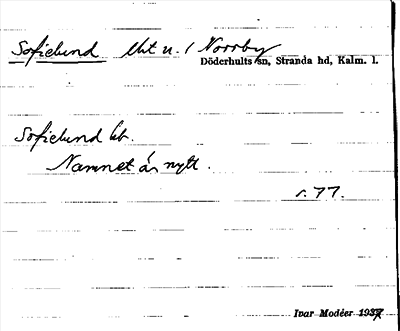 Sofielund lht u. 1 Norrby
Döderhults sn, Stranda hd, Kalm. l.
Sofielund
Namnet är nytt.
s. 77.
Ivar Modéer 1937